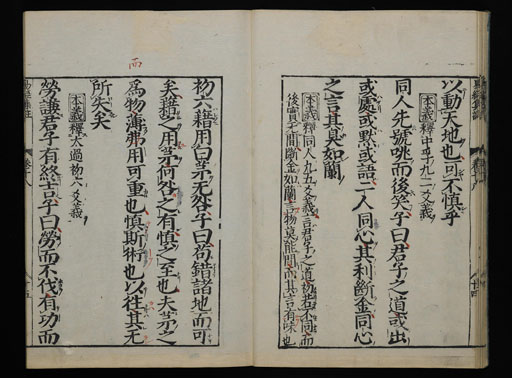 以動天地也可不慎乎
本義釋中孚九二爻義
同人先號咷而後笑子曰君子之道或出
或處或默或語二人同心其利斷金同心
之言其臭如蘭
本義釋同人九五爻義言君子之道初若不同而
後實无間斷金如蘭言物莫能間而其言有味也
初六藉用白茅无咎子曰苟錯諸地而可
矣藉之用茅何咎之有慎之至也夫茅之
為物薄而用可重也慎斯術也以往其无
所失矣
本義釋大過初六爻義
勞謙君子有終吉子曰勞而不伐有功而
而
卷十八
十五
十四